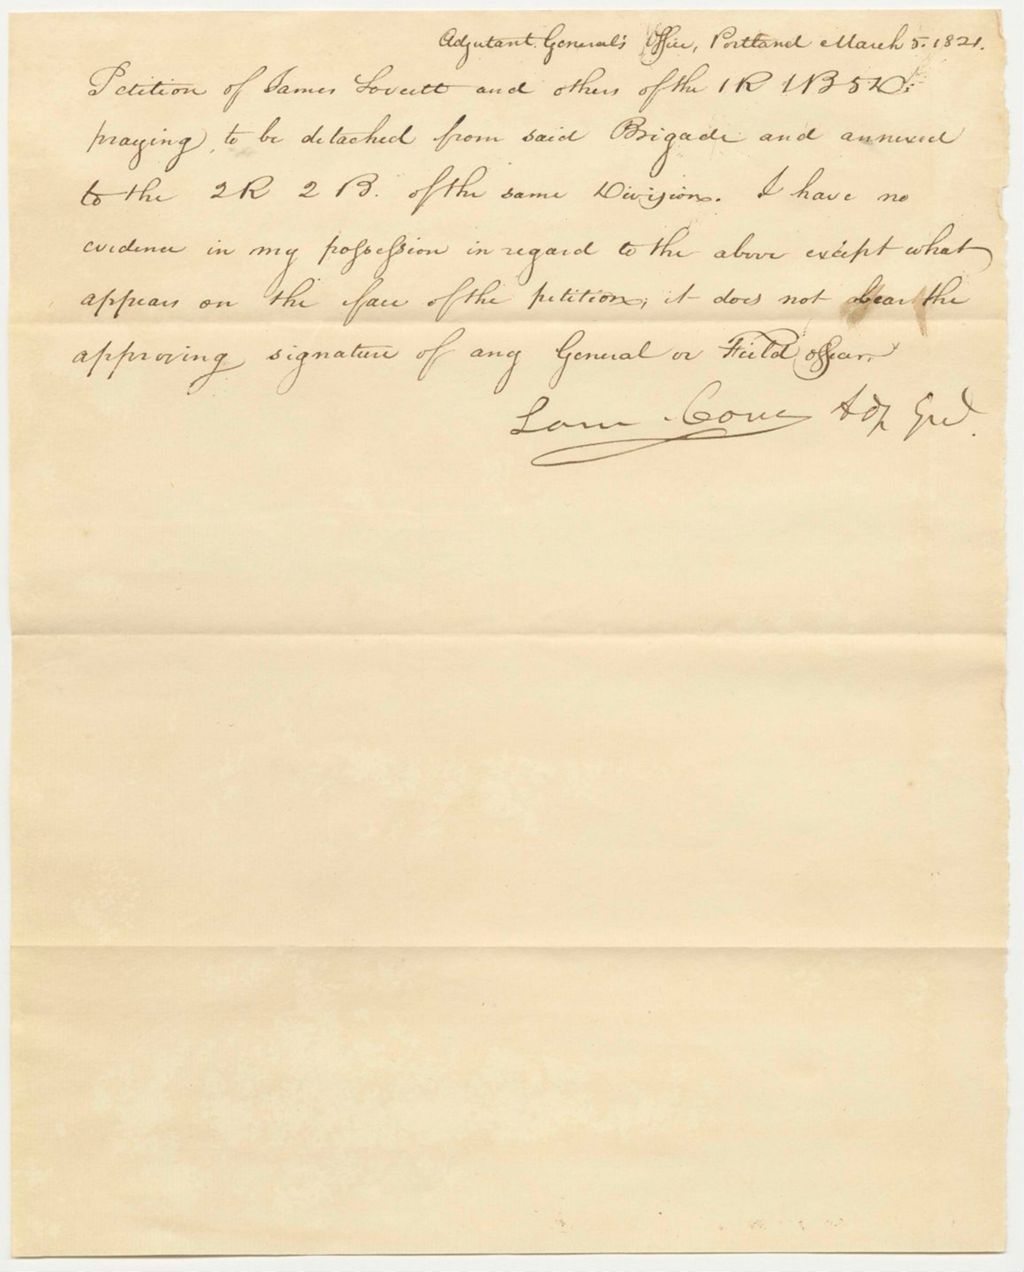 Adjutant General's Office, Portland March 5. 1821.
Petition of James Lovett and others of the 1 R 1 B 5 Dn:
praying, to be detached from said Brigade and annexed
to the 2 R 2 B. of the same Division. I have no
evidence in my possession in regard to the above except what
appears on the face of the petition; it does not bear the
approving signature of any General or Field officer.
Saml Cony Adj Genl.